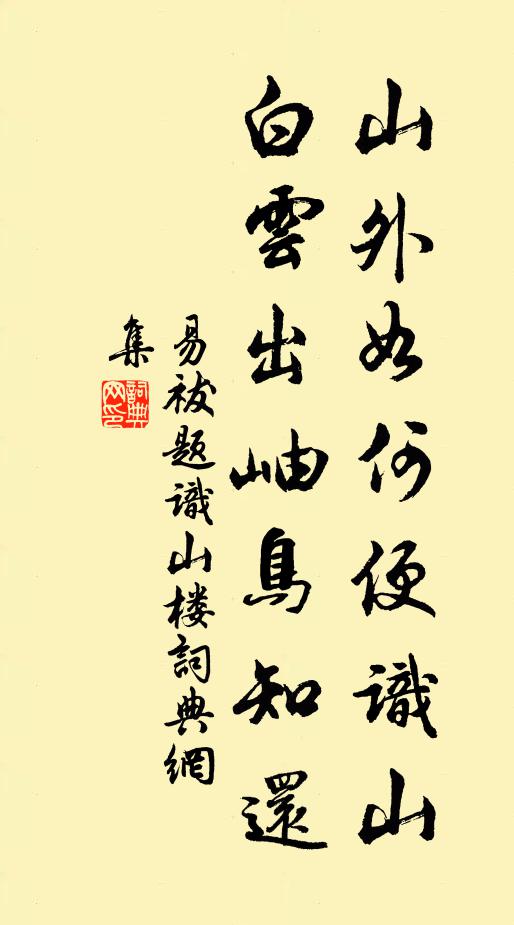 山外如何便識山
白雲出岫鳥知還
易祓題識山楼詞典網
集
詞典
网印